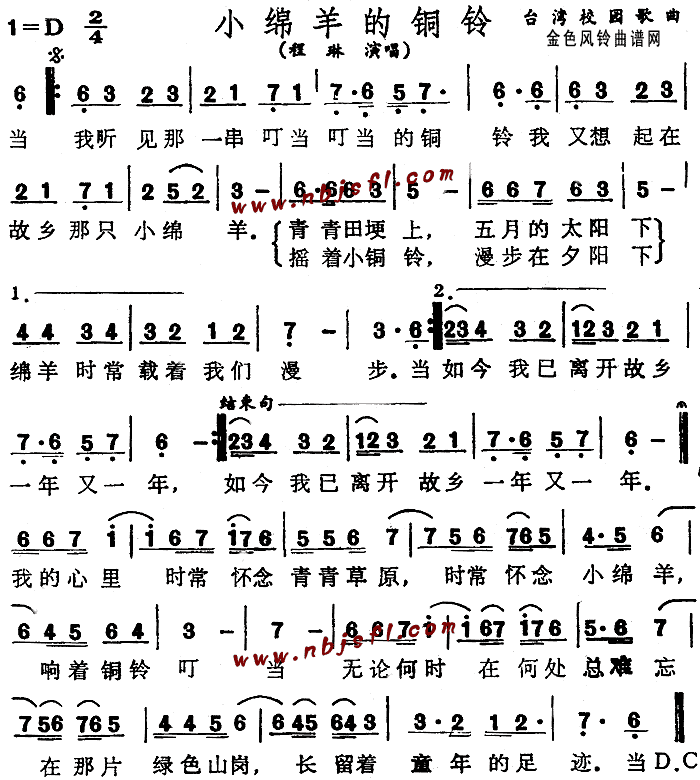 小绵羊的铜铃
1=D 2/4
台湾校园歌曲
(程琳 演唱)
金色风铃曲谱网
6 6 3 2 3 2 1 7 1 7·6 5 7· 6·6 6 3 2 3
当 我听见那一串叮当叮当的铜铃我又想起在
2 1 7 1 2 5 2 3 - 6·6 6 3 5 - 6 6 7 6 3 5 -
www.nbjsfl.com
故乡那只小绵羊. 青青田埂上, 五月的太阳下
摇着小铜铃, 漫步在夕阳下
1. 2.
4 4 3 4 3 2 1 2 7 - 3·6 2 3 4 3 2 1 2 3 2 1
绵羊时常载着我们漫步.当如今我已离开故乡
结束句
7·6 5 7 6 - 2 3 4 3 2 1 2 3 2 1 7·6 5 7 6 -
一年又一年, 如今我已离开故乡一年又一年.
6 6 7 i i 6 7 i 7 6 5 5 6 7 7 5 6 7 6 5 4·5 6
我的心里时常怀念青青草原,时常怀念小绵羊,
6 4 5 6 4 3 - 7 - 6 6 7 i i 6 7 i 7 6 5·6 7
www.nbjsfl.com
响着铜铃叮当无论何时在何处总难忘
7 5 6 7 6 5 4 4 5 6 6 4 5 6 4 3 3·2 1 2· 7·6
在那片绿色山岗,长留着童年的足迹.当D.C